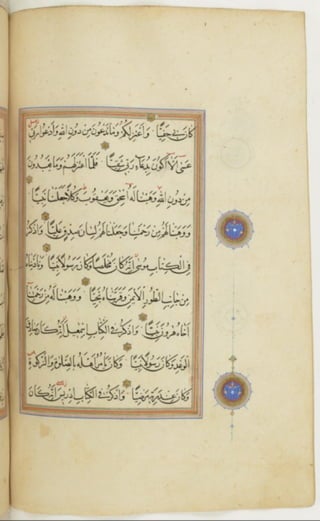 كَانَ بِي حَفِيًّا وَأَعْتَزِلُكُمْ وَمَا تَدْعُونَ مِنْ دُونِ اللَّهِ وَأَدْعُوا رَبِّي
عَسَى أَلَّا أَكُونَ بِدُعَاءِ رَبِّي شَقِيًّا فَلَمَّا اعْتَزَلَهُمْ وَمَا يَعْبُدُونَ
مِنْ دُونِ اللَّهِ وَهَبْنَا لَهُ إِسْحَقَ وَيَعْقُوبَ وَكُلًّا جَعَلْنَا نَبِيًّا
وَوَهَبْنَا لَهُمْ مِنْ رَحْمَتِنَا وَجَعَلْنَا لَهُمْ لِسَانَ صِدْقٍ عَلِيًّا وَاذْكُرْ
فِي الْكِتَابِ مُوسَى إِنَّهُ كَانَ مُخْلَصًا وَكَانَ رَسُولًا نَبِيًّا وَنَادَيْنَاهُ
مِنْ جَانِبِ الطُّورِ الْأَيْمَنِ وَقَرَّبْنَاهُ نَجِيًّا وَوَهَبْنَا لَهُ مِنْ رَحْمَتِنَا
أَخَاهُ هَرُونَ نَبِيًّا وَاذْكُرْ فِي الْكِتَابِ إِسْمَعِيلَ إِنَّهُ كَانَ صَادِقَ
الْوَعْدِ وَكَانَ رَسُولًا نَبِيًّا وَكَانَ يَأْمُرُ أَهْلَهُ بِالصَّلَوةِ وَالزَّكَوةِ
وَكَانَ عِنْدَ رَبِّهِ مَرْضِيًّا وَاذْكُرْ فِي الْكِتَابِ إِدْرِيسَ إِنَّهُ كَانَ